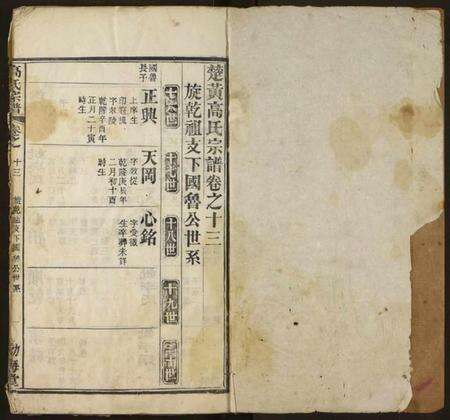 楚黃高氏宗譜卷之十三
旋乾祖支下國魯公世系
十六世
十七世
十八世
十九世
二十世
國魯
長子
正興
上庠生
字東陵
乾隆辛酉年
正月二十寅
時生
天岡
字敦從
乾隆庚辰年
二月初十酉
時生
心銘
字愛微
生卒葬未詳
高氏宗譜
卷之
十三
旋乾祖支下國魯公世系